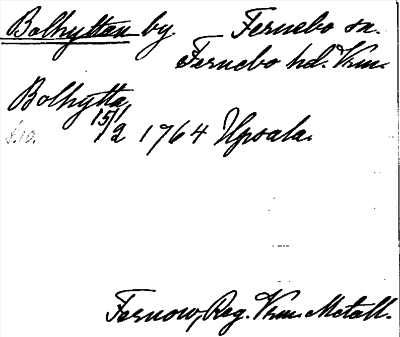 Bolhyttan by Fernebo sn.
Fernebo hd. Vrm.
Bolhytta,
15/12 1764 Upsala.
Fernow, Reg. Vrm. Metall.